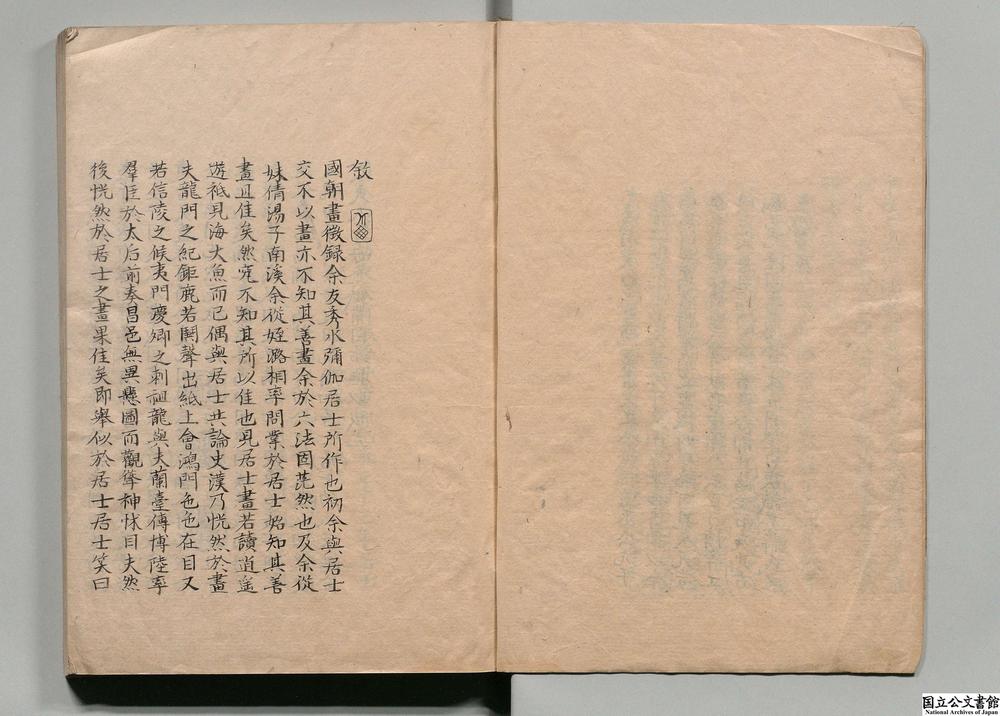 敘
國朝畫徵録余友秀水彌伽居士所作也初余與居士
交不以畫亦不知其善畫余於六法固茫然也及余從
妹倩湯子南溪余從姪潞相率問業於居士始知其善
畫且佳矣然究不知其所以佳也見居士畫若讀逍遙
遊祗見海大魚而已偶與居士共論史漢乃恍然於畫
夫龍門之紀鉅鹿若鬭聲出紙上會鴻門色色在目又
若信陵之候夷門慶卿之刺祖龍與夫蘭臺傳博陸率
羣臣於太后前奏昌邑無異懸圖而觀聳神怵目夫然
後恍然於居士之畫果佳矣即舉似於居士居士笑曰
国立公文書館
National Archives of Japan